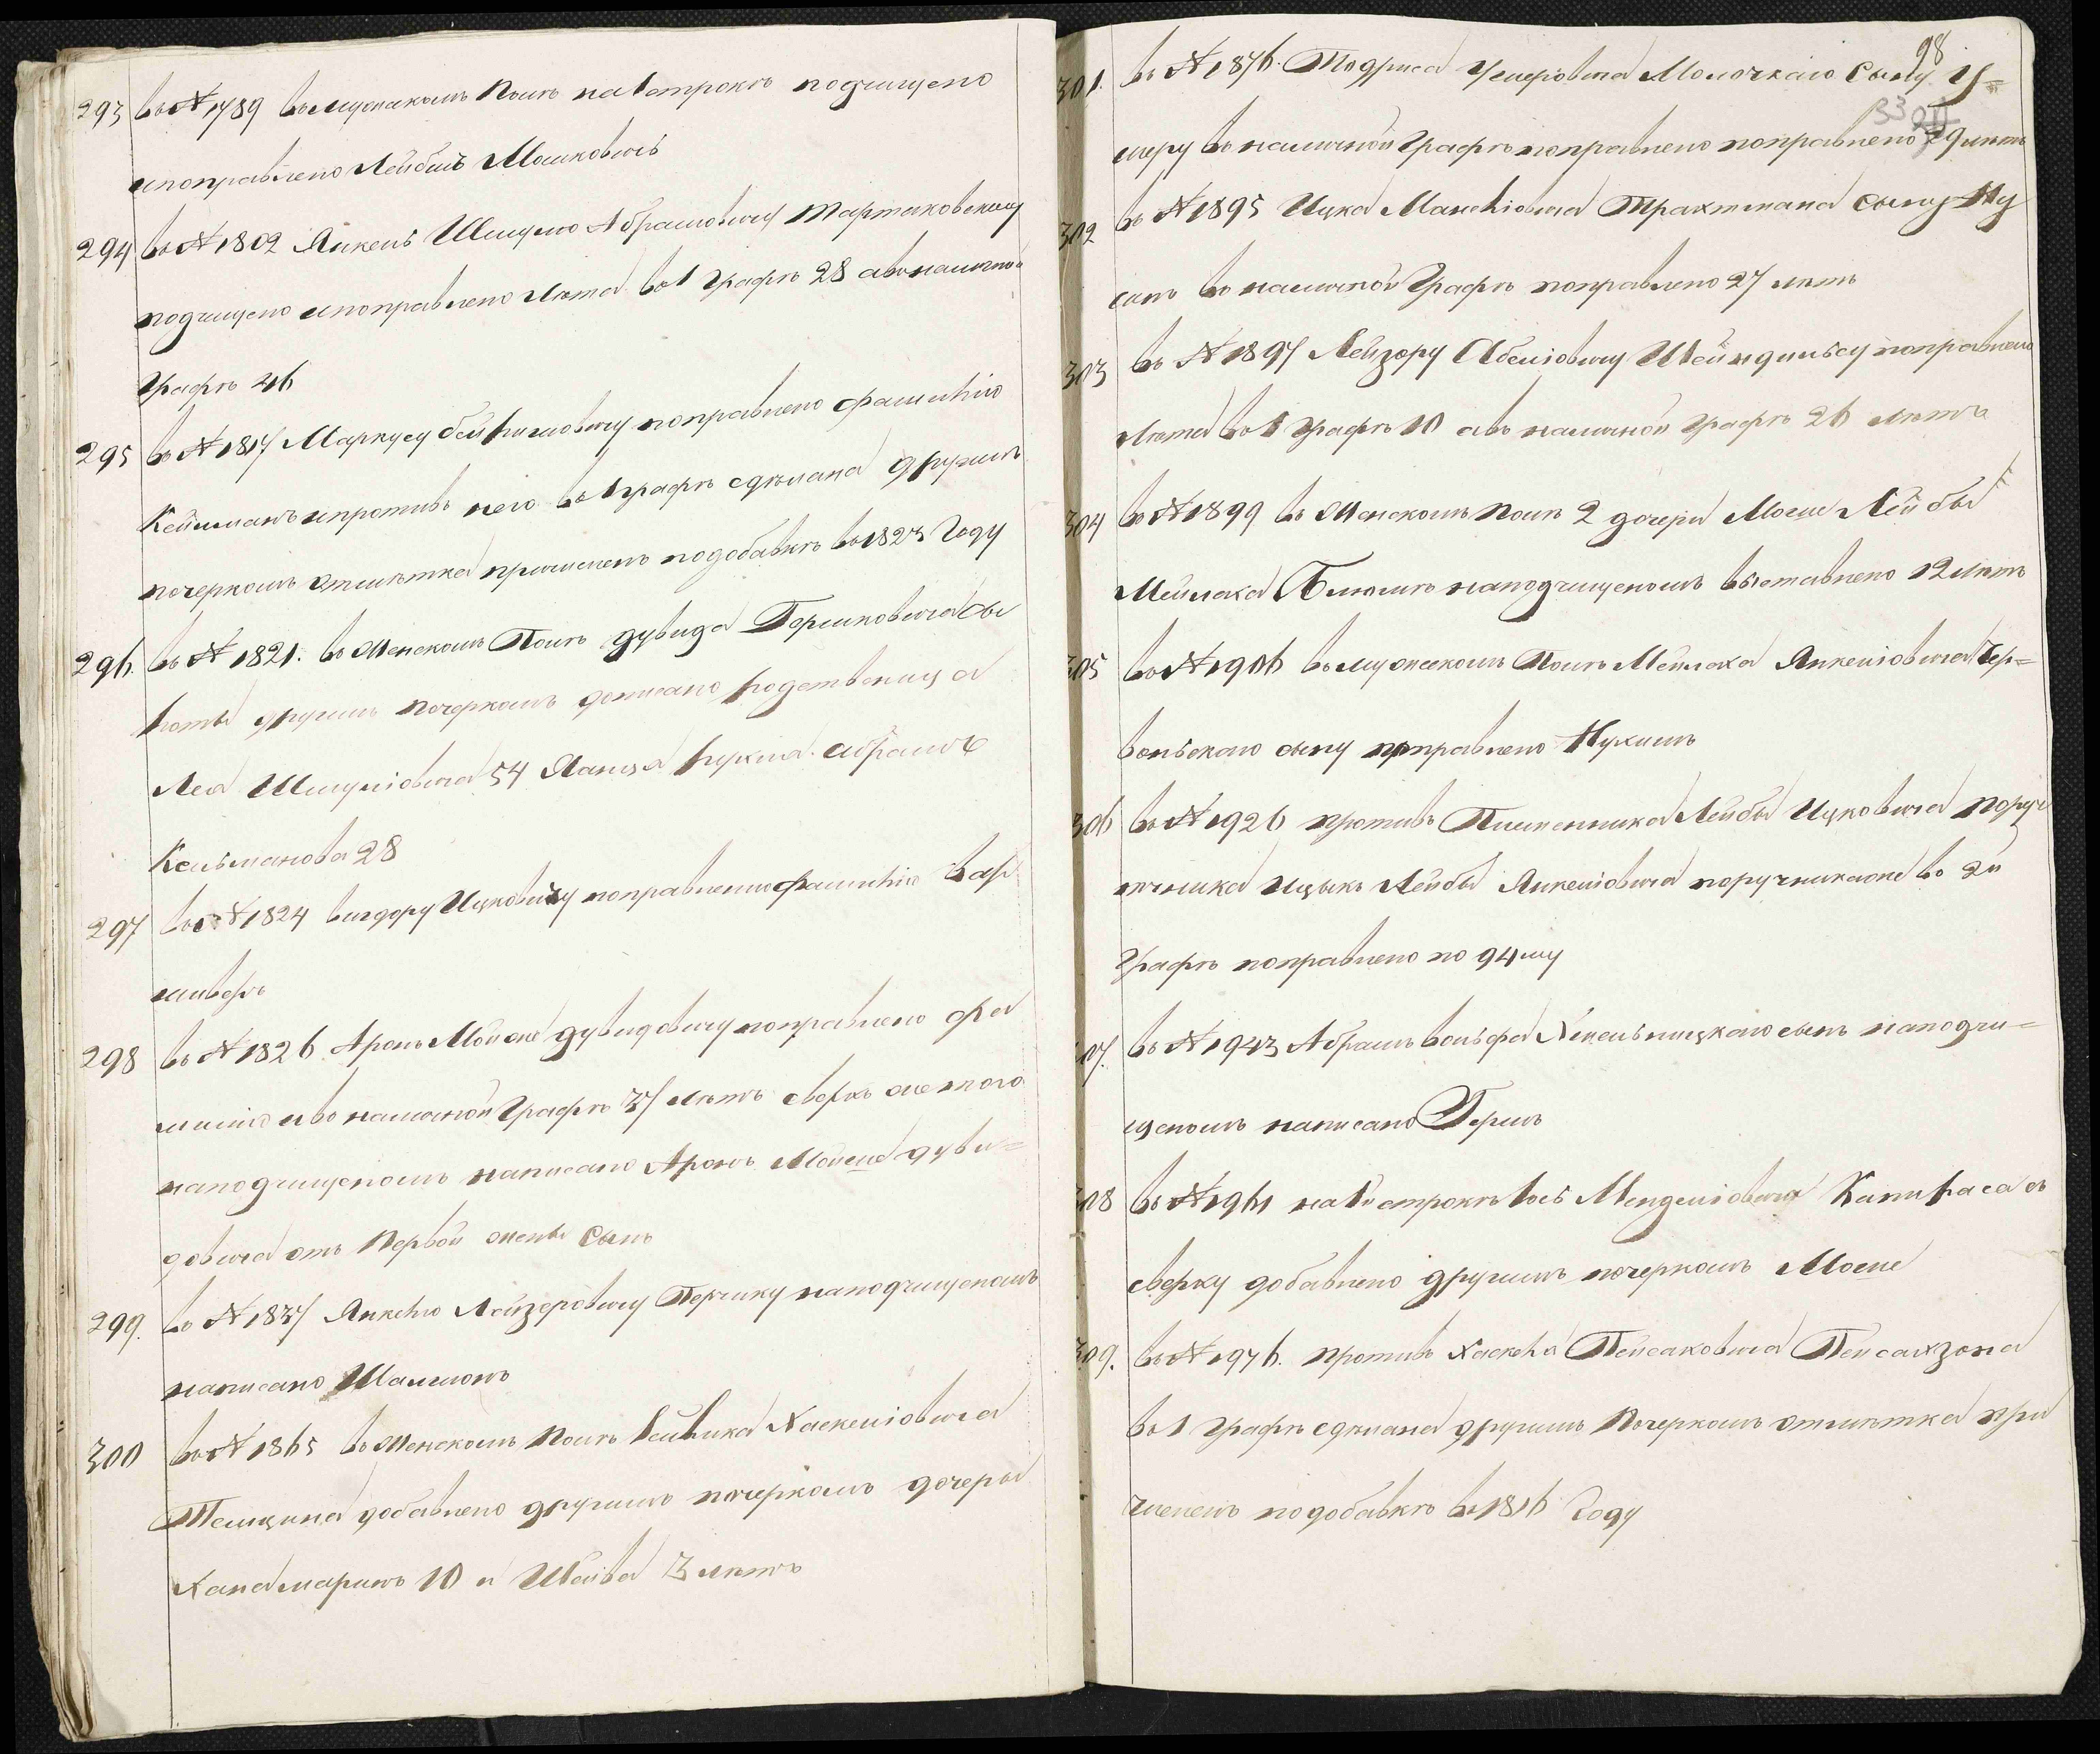 293 въ № 1789 въ мужскомъ Полѣ на 1 строкѣ подчищено
и поправлено Лейбишъ Машковичъ
294 въ № 1802 Янкель Шмулю Абрамовичу Тартаковскому
подчищено и поправлено лѣта въ 1 графѣ 28 а въ наличной
Графѣ 46
295 въ № 1817 Маркусу поправлено фамилію
Кейлманъ и противъ него въ 1 графѣ сдѣлана другимъ
почеркомъ отмѣтка причисленъ по добавкѣ въ 1823 Году
296. въ № 1821. въ Женскомъ Полѣ Дувида Гершковича
другимъ почеркомъ дописано родственница
Лея Шмуліовича 54 Рухля Абрамъ
Кельманова 28
297 въ № 1824 Вигдору Ицковичу поправленно фамилію Вар
шаверъ
298 въ № 1826 Аронъ Мойше Дувидовичу поправлено фа
милію и въ наличной Графѣ 37 лѣтъ сверхъ же того
на подчищеномъ написано Аронъ Мойше Дуви=
довича отъ Первой жены Сынъ
299. въ № 1837 Янкелю Лейзеровичу Перчику на подчищеномъ
написано Шаломъ
300 въ № 1865 въ Женскомъ Полѣ Хаскеліовича
добавлено другимъ почеркомъ дочеры
Хана Маримъ 10 и Шейва 3 лѣтъ
98
301. въ № 1876. Тодриса Ушеровича Молочкаго Сыну У=
33
шеру въ наличной Графѣ поправлено поправлено лѣтъ
302 въ № 1895 Ицка Манеліовича Трахтмана Сыну Ну
симъ въ наличной Графѣ поправлено 27 лѣтъ
303 въ № 1897 Лейзору Абеліовичу Шейндлису поправлено
лѣта въ 1 Графѣ 10 а въ наличной Графѣ 26 лѣтъ
304 въ № 1899 въ Женскомъ Полѣ 2 дочери Мосше Лейбы
Мейлаха Блюмѣ на подчищеномъ выставлено 12 лѣтъ
305 въ № 1906 въ мужскомъ Полѣ Мейлаха Янкеліовича Чер=
вонскаго сыну поправлено Нухимъ
306 въ № 1926 противъ Племенника Лейбы Ицковича Поруч
ечника Ицыкъ Лейбы Янкеліовича поручника же во 2й
Графѣ поправлено по 94му
307. въ № 1943 Абрамъ Вольфа Хмельницкаго сынъ на подчи=
щеномъ написано Гершъ
308 въ № 1961 на 1й строкѣ Іось Менделіовича Канираса съ
сверху добавлено другимъ почеркомъ Мосше
309. въ № 1976. противъ Хаскеля Пейсаковича Пейсахзона
въ 1 Графѣ сдѣлана другимъ Почеркомъ отмѣтка при
численъ по добавкѣ въ 1816 Году